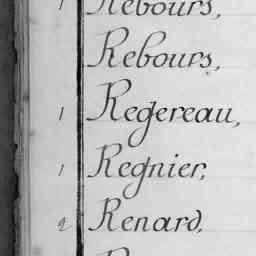 1 Rebours,
Rebours,
1 Regereau,
1 Regnier,
2 Renard,